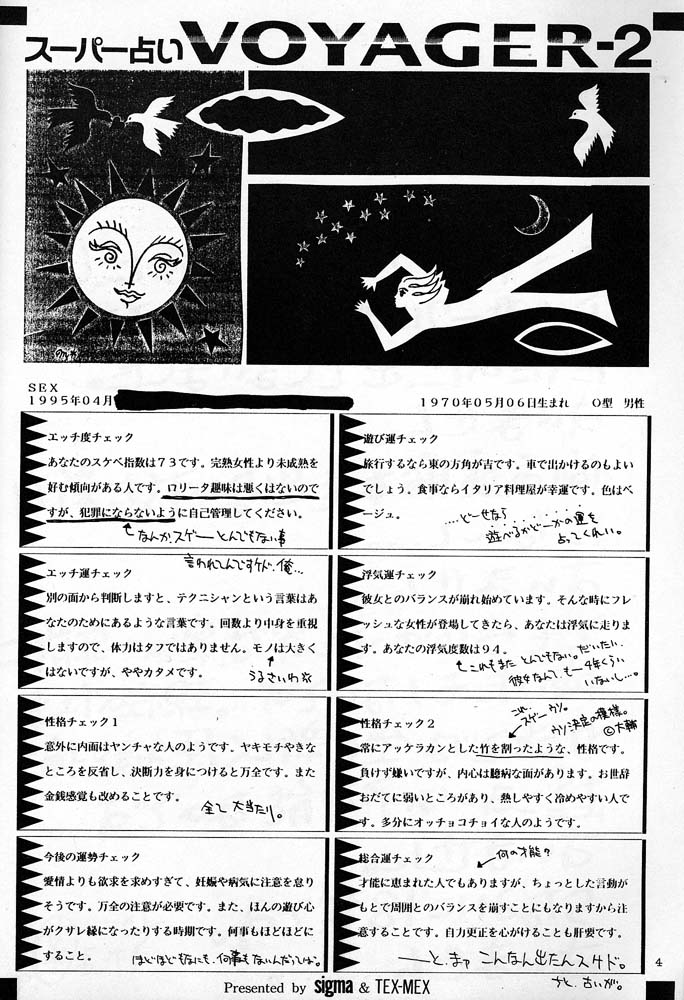 スーパー占い VOYAGER-2
SEX
1995年04月
1970年05月06日生まれ O型 男性
エッチ度チェック
あなたのスケベ指数は73です。完熟女性より未成熟を
好む傾向がある人です。ロリータ趣味は悪くはないので
すが、犯罪にならないように自己管理してください。
なんか、スゲーとんでもない事
言われてんですケド、俺…
遊び運チェック
旅行するなら東の方角が吉です。車で出かけるのもよい
でしょう。食事ならイタリア料理屋が幸運です。色はベ
ージュ。
…どーせなら
遊べるかどーかの運を
占ってくれい。
エッチ運チェック
別の面から判断しますと、テクニシャンという言葉はあ
なたのためにあるような言葉です。回数より中身を重視
しますので、体力はタフではありません。モノは大きく
はないですが、ややカタメです。
うるさいわ
浮気運チェック
彼女とのバランスが崩れ始めています。そんな時にフレ
ッシュな女性が登場してきたら、あなたは浮気に走りま
す。あなたの浮気度数は94。
これもまた とんでもない。だいたい
彼女なんて、もー4年くらい
いないし…。
性格チェック1
意外に内面はヤンチャな人のようです。ヤキモチやきな
ところを反省し、決断力を身につけると万全です。また
金銭感覚も改めることです。
全て大当たり。
これ、
スゲーウソ。
ウソ決定の模様。
©大輔
性格チェック2
常にアッケラカンとした竹を割ったような、性格です。
負けず嫌いですが、内心は臆病な面があります。お世辞
おだてに弱いところがあり、熱しやすく冷めやすい人で
す。多分にオッチョコチョイな人のようです。
今後の運勢チェック
愛情よりも欲求を求めすぎて、妊娠や病気に注意を怠り
そうです。万全の注意が必要です。また、ほんの遊び心
がクサレ縁になったりする時期です。何事もほどほどに
すること。
ほどほどもなにも、何事もないんだってば。
総合運チェック
何の才能?
才能に恵まれた人でもありますが、ちょっとした言動が
もとで周囲とのバランスを崩すことにもなりますから注
意することです。自力更正を心がけることも肝要です。
―と、まァ こんなん出たんスケド。
4
Presented by sigma & TEX-MEX